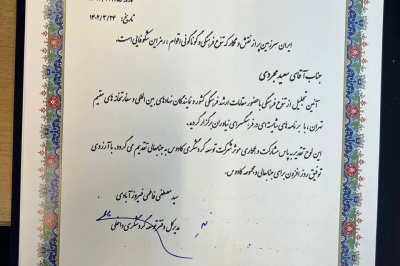 تاریخ: ۱۴۰۲/۳/۲۴
ایران سرزمین پر از نقش و نگار که تنوع فرهنگی و گوناگونی اقوام، رمز این شکوفایی است.
جناب آقای سعید مجردسی
آئین تجلیل از تنوع فرهنگی با حضور مقامات ارشد فرهنگی کشور و نمایندگان نهادهای بین المللی و سفارتخانه های مقیم
تهران، با برنامه های شایسته ای در فرهنگسرای نیاوران برگزار گردید.
این لوح تقدیر به پاس مشارکت و همکاری موثر شرکت توسعه گردشگری کادوس به جنابعالی تقدیم می گردد. با آرزوی
توفیق روز افزون برای جنابعالی و مجموعه کادوس.
سید مصطفی فاطمی فیروزآبادی
مدیرکل دفتر توسعه گردشگری داخلی